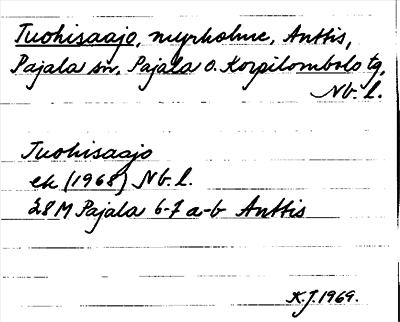 Tuohisaajo, myrholme, Anttis,
Pajala sn, Pajala o. Korpilombolo tg,
Nb. l.
Tuohisaajo
ek (1968) Nb. l.
28M Pajala 6-7 a-b Anttis
K.J. 1969.